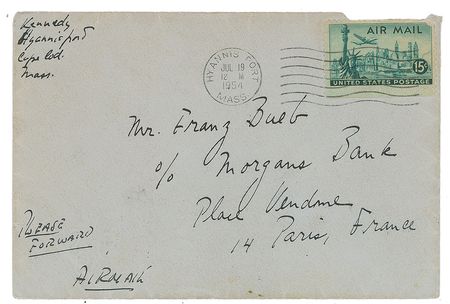 Kennedy
Hyannisport
Cape Cod.
Mass.
HYANNIS PORT
JUL 19
12 M
1954
MASS.
AIR MAIL
15¢
UNITED STATES POSTAGE
Mr. Franz Bueb
% Morgans Bank
Place Vendme
14 Paris, France
PLEASE
FORWARD
AIRMAIL